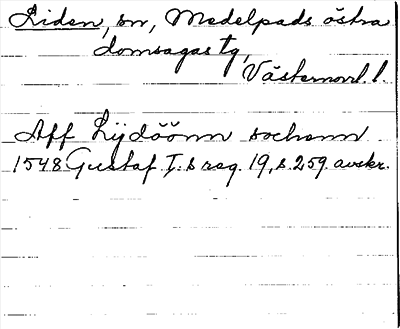 Liden, sn, Medelpads östra
domsagas tg,
Västernorrl. l.
Aff Lijdöönn sochenn
1548 Gustaf I:s reg. 19, s. 259 avskr.